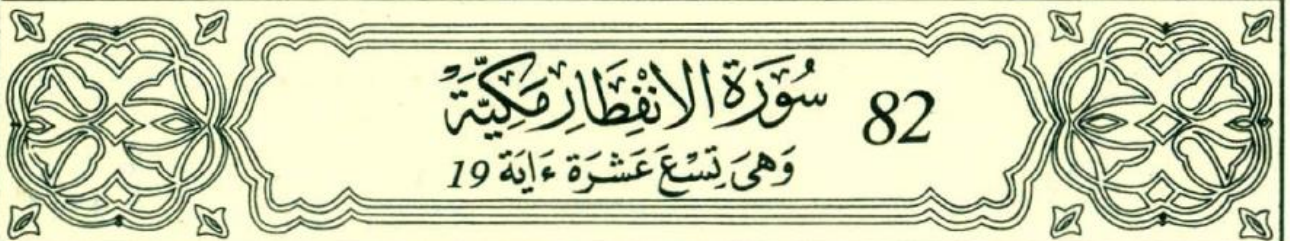 82 سُورَةُ الانْفِطَارِ مَكِّيَّةٌ
وَهِيَ تِسْعَ عَشْرَةَ ءَايَة 19